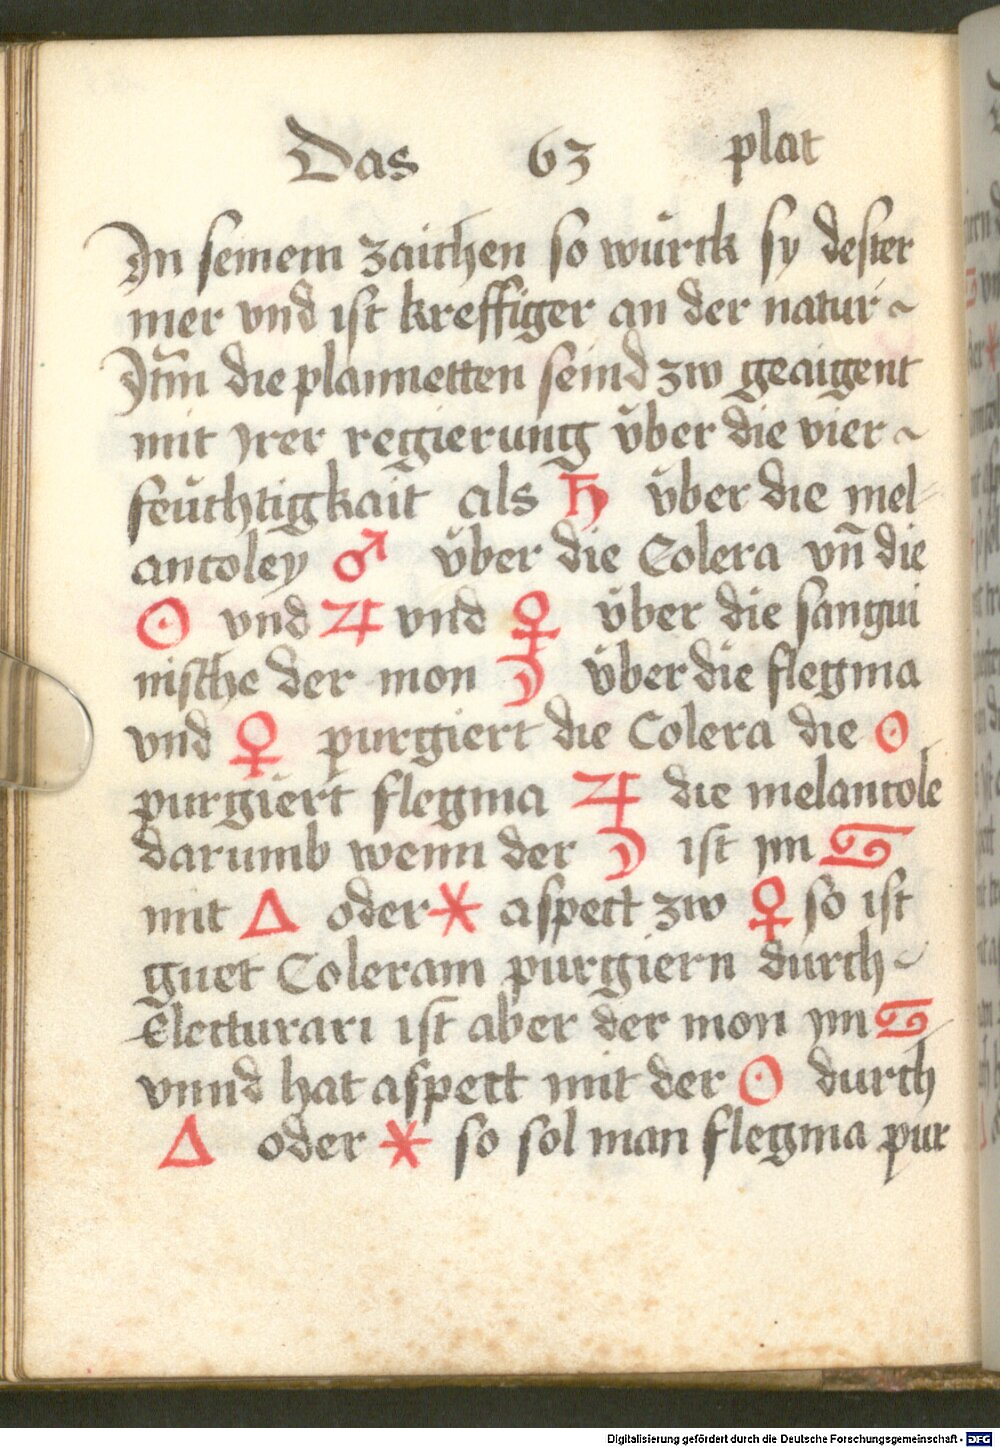 Das 63 plat
In seinem zaichen so würck sy dester
mer vnd ist kreffiger an der natur ~
Itm̄ die plannetten seind zw geaigent
mit yrer regierung v̈ber die vier ~
feüchtigkait als ♄ v̈ber die mel-
ancoley ♂ v̈ber die Colera vn̄ die
☉ vnd ♃ vnd ♀ v̈ber die sangui
nische der mon ☽ v̈ber die flegma
vnd ♀ purgiert die Colera die ☉
purgiert flegma ♃ die melancole
darumb wenn der ☽ ist ym ♋
mit △ oder ⚹ aspect zw ♀ so ist
guet Coleram purgiern durch ~
Electurari ist aber der mon ym ♋
vnnd hat aspect mit der ☉ durch
△ oder ⚹ so sol man flegma pur
Digitalisierung gefördert durch die Deutsche Forschungsgemeinschaft - DFG